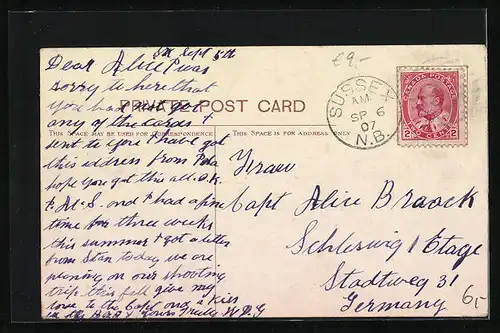 Sept 5th
Dear Alice I was
sorry to here that
you had not got
any of the cards I
sent to you I have got
this address from
hope you got this all O.K.
and I had a fine
time for three weeks
this summer I got a letter
from Stan today we are
planing on our shooting
trip this fall give my
love to the Capt and a kiss
Yours Truly
PRIVATE POST CARD
THIS SPACE MAY BE USED FOR CORRESPONDENCE
THIS SPACE IS FOR ADDRESS ONLY
€9,-
SUSSEX
AM
SP 6
07
N.B.
CANADA POSTAGE
2 CENTS 2
Frau
Capt Alice Braack
Schleswig 1 Etage
Stadtweg 31
Germany
6,-